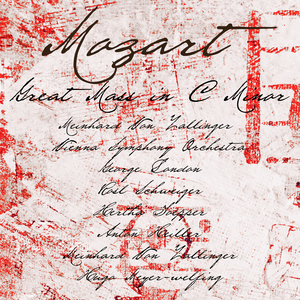 Mozart
Great Mass in C Minor
Meinhard Von Zallinger
Vienna Symphony Orchestra
George London
Rosl Schwaiger
Hertha Toepper
Anton Heiller
Meinhard Von Zallinger
Hugo Meyer-welfing